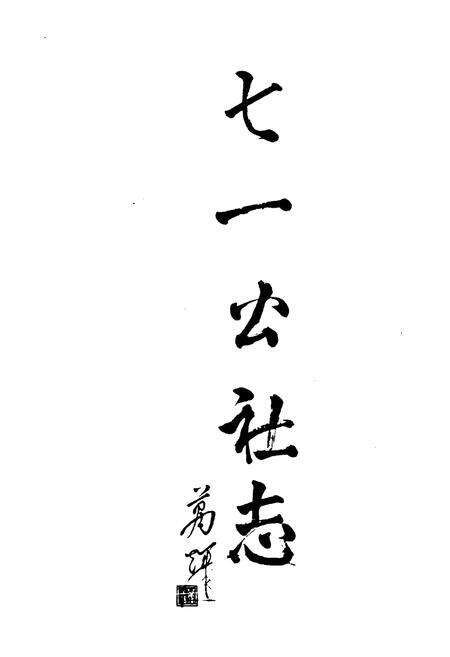 七一公社志